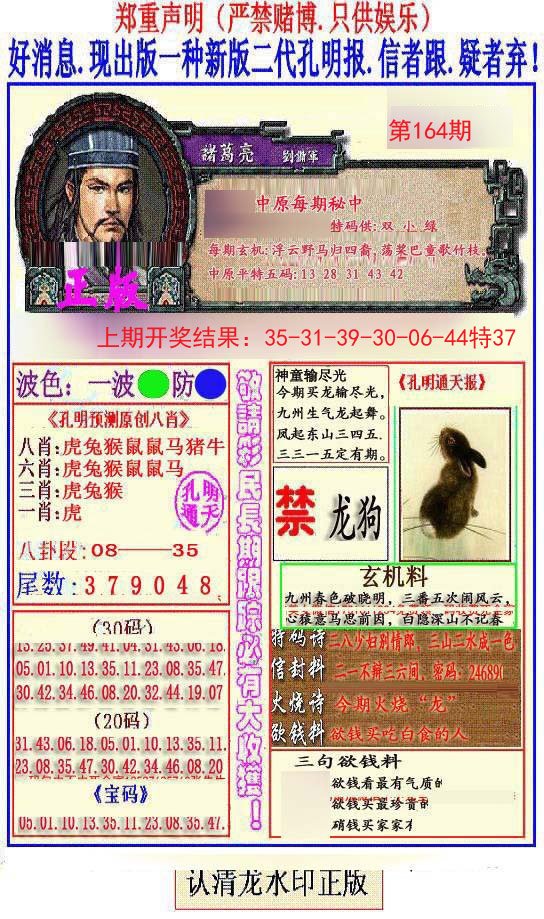 郑重声明（严禁赌博.只供娱乐）
好消息.现出版一种新版二代孔明报.信者跟.疑者弃！
第164期
諸葛亮 劉備軍
中原每期秘中
特码供:双 小 绿
每期玄机:浮云野马归四裔,荡桨巴童歌竹枝.
中原平特五码:13 28 31 43 42
正版
上期开奖结果：35-31-39-30-06-44特37
波色：一波 防
《孔明预测原创八肖》
八肖:虎兔猴鼠鼠马猪牛
六肖:虎兔猴鼠鼠马
三肖:虎兔猴
一肖:虎
孔明
通天
八卦段:08——35
尾数:379048
(30码)
13.25.37.49.41.04.31.43.06.18.
05.01.10.13.35.11.23.08.35.47.
30.42.34.46.08.20.32.44.19.07
(20码)
31.43.06.18.05.01.10.13.35.11.
23.08.35.47.30.42.34.46.08.20
《宝码》
05.01.10.13.35.11.23.08.35.47.
敬請彩民長期跟踪必有大收獲！
神童输尽光
今期买龙输尽光,
九州生气龙起舞。
凤起东山三四五.
三三一五定有期。
《孔明通天报》
禁 龙狗
玄机料
九州春色破晓明, 三番五次闹风云,
心猿意马思前因, 百隐深山不记春
特码诗 三八少妇别情郎, 三山二水成一色
信封料 二一不辩三六间, 密码: 246890
火烧诗 今期火烧“龙”
欲钱料 欲钱买吃白食的人
三句欲钱料
欲钱看最有气质的
欲钱买最珍贵的
硝钱买家家有
认清龙水印正版